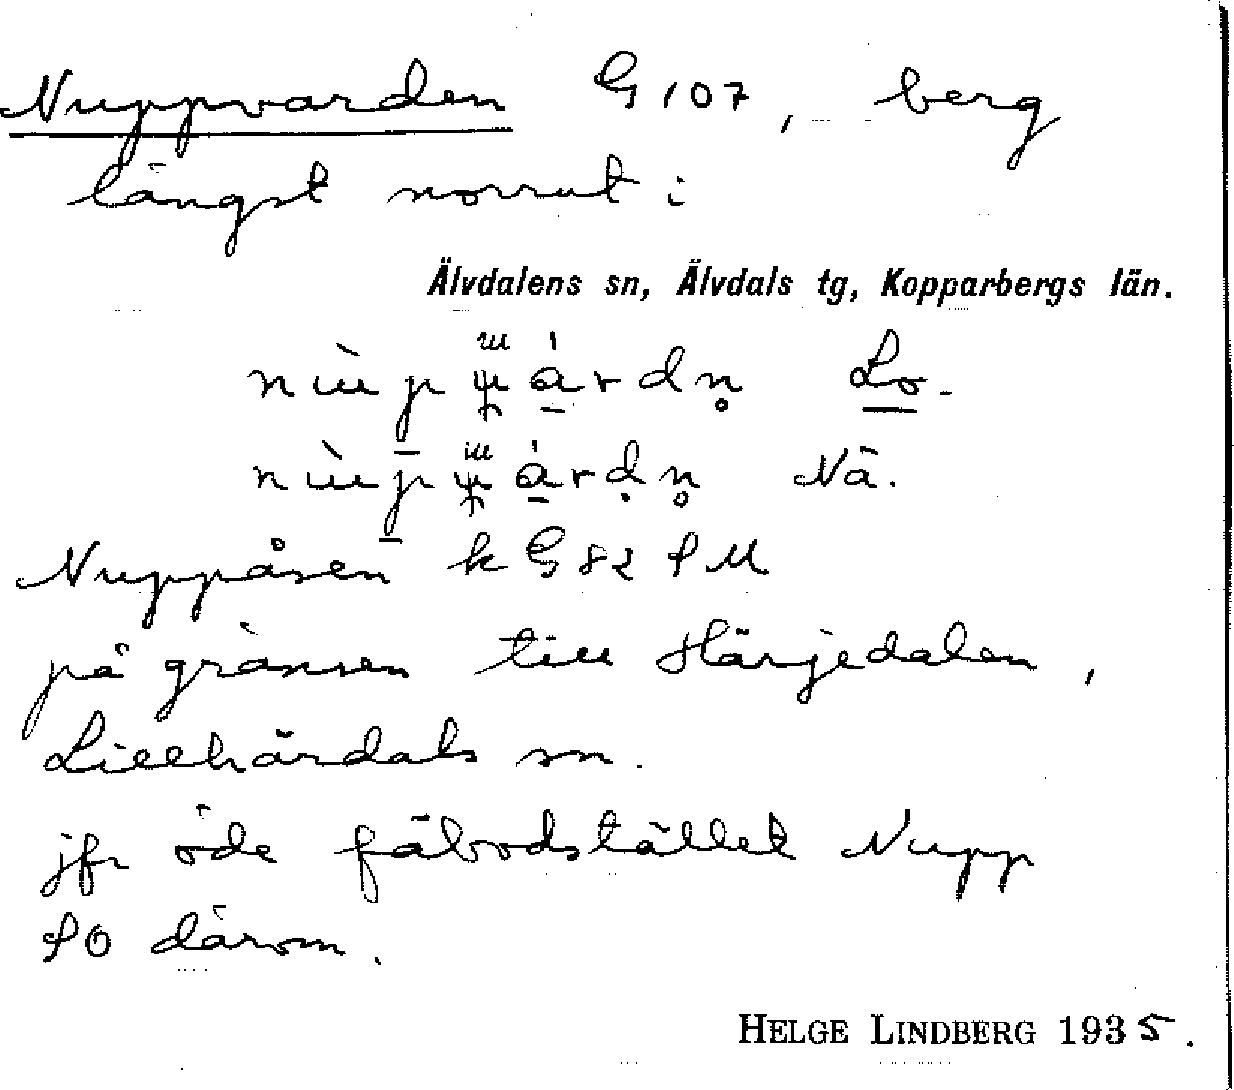 Nuppvarden G 107, berg
längst norrut i
Älvdalens sn, Älvdals tg, Kopparbergs län.
Lo.
Nä.
Nuppåsen k G 82 SM
på gränsen till Härjedalen,
Lillhärdals sn.
jfr öde fäbodstället Nupp
SO därom.
HELGE LINDBERG 1935.